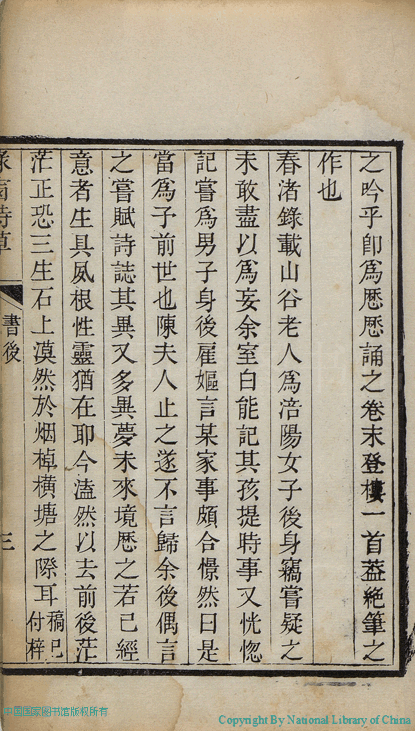 之吟乎卽爲厯厯誦之卷末登樓一首葢絶筆之
作也
春渚錄載山谷老人爲涪陽女子後身竊嘗疑之
未敢盡以爲妄余室白能記其孩提時事又恍惚
記嘗爲男子身後雇嫗言某家事頗合憬然曰是
當爲子前世也陳夫人止之遂不言歸余後偶言
之嘗賦詩誌其異又多異夢未來境厯之若已經
意者生具夙根性靈猶在耶今溘然以去前後茫
茫正恐三生石上漠然於烟棹橫塘之際耳稿已付梓
詩草
書後
三
中国国家图书馆版权所有
Copyright By National Library of China